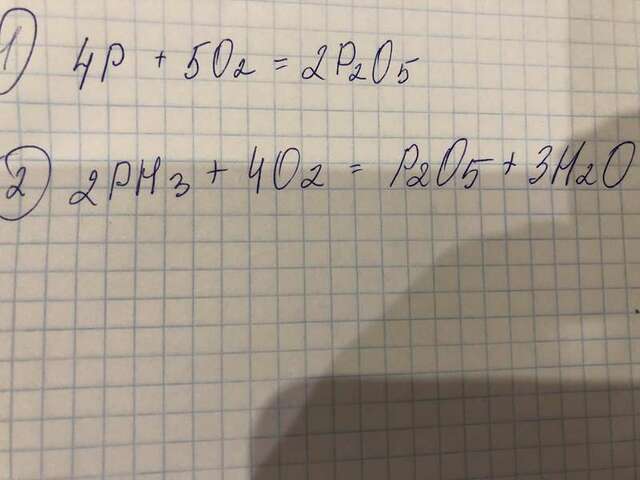 1) 4P + 5O2 = 2P2O5
2) 2PH3 + 4O2 = P2O5 + 3H2O